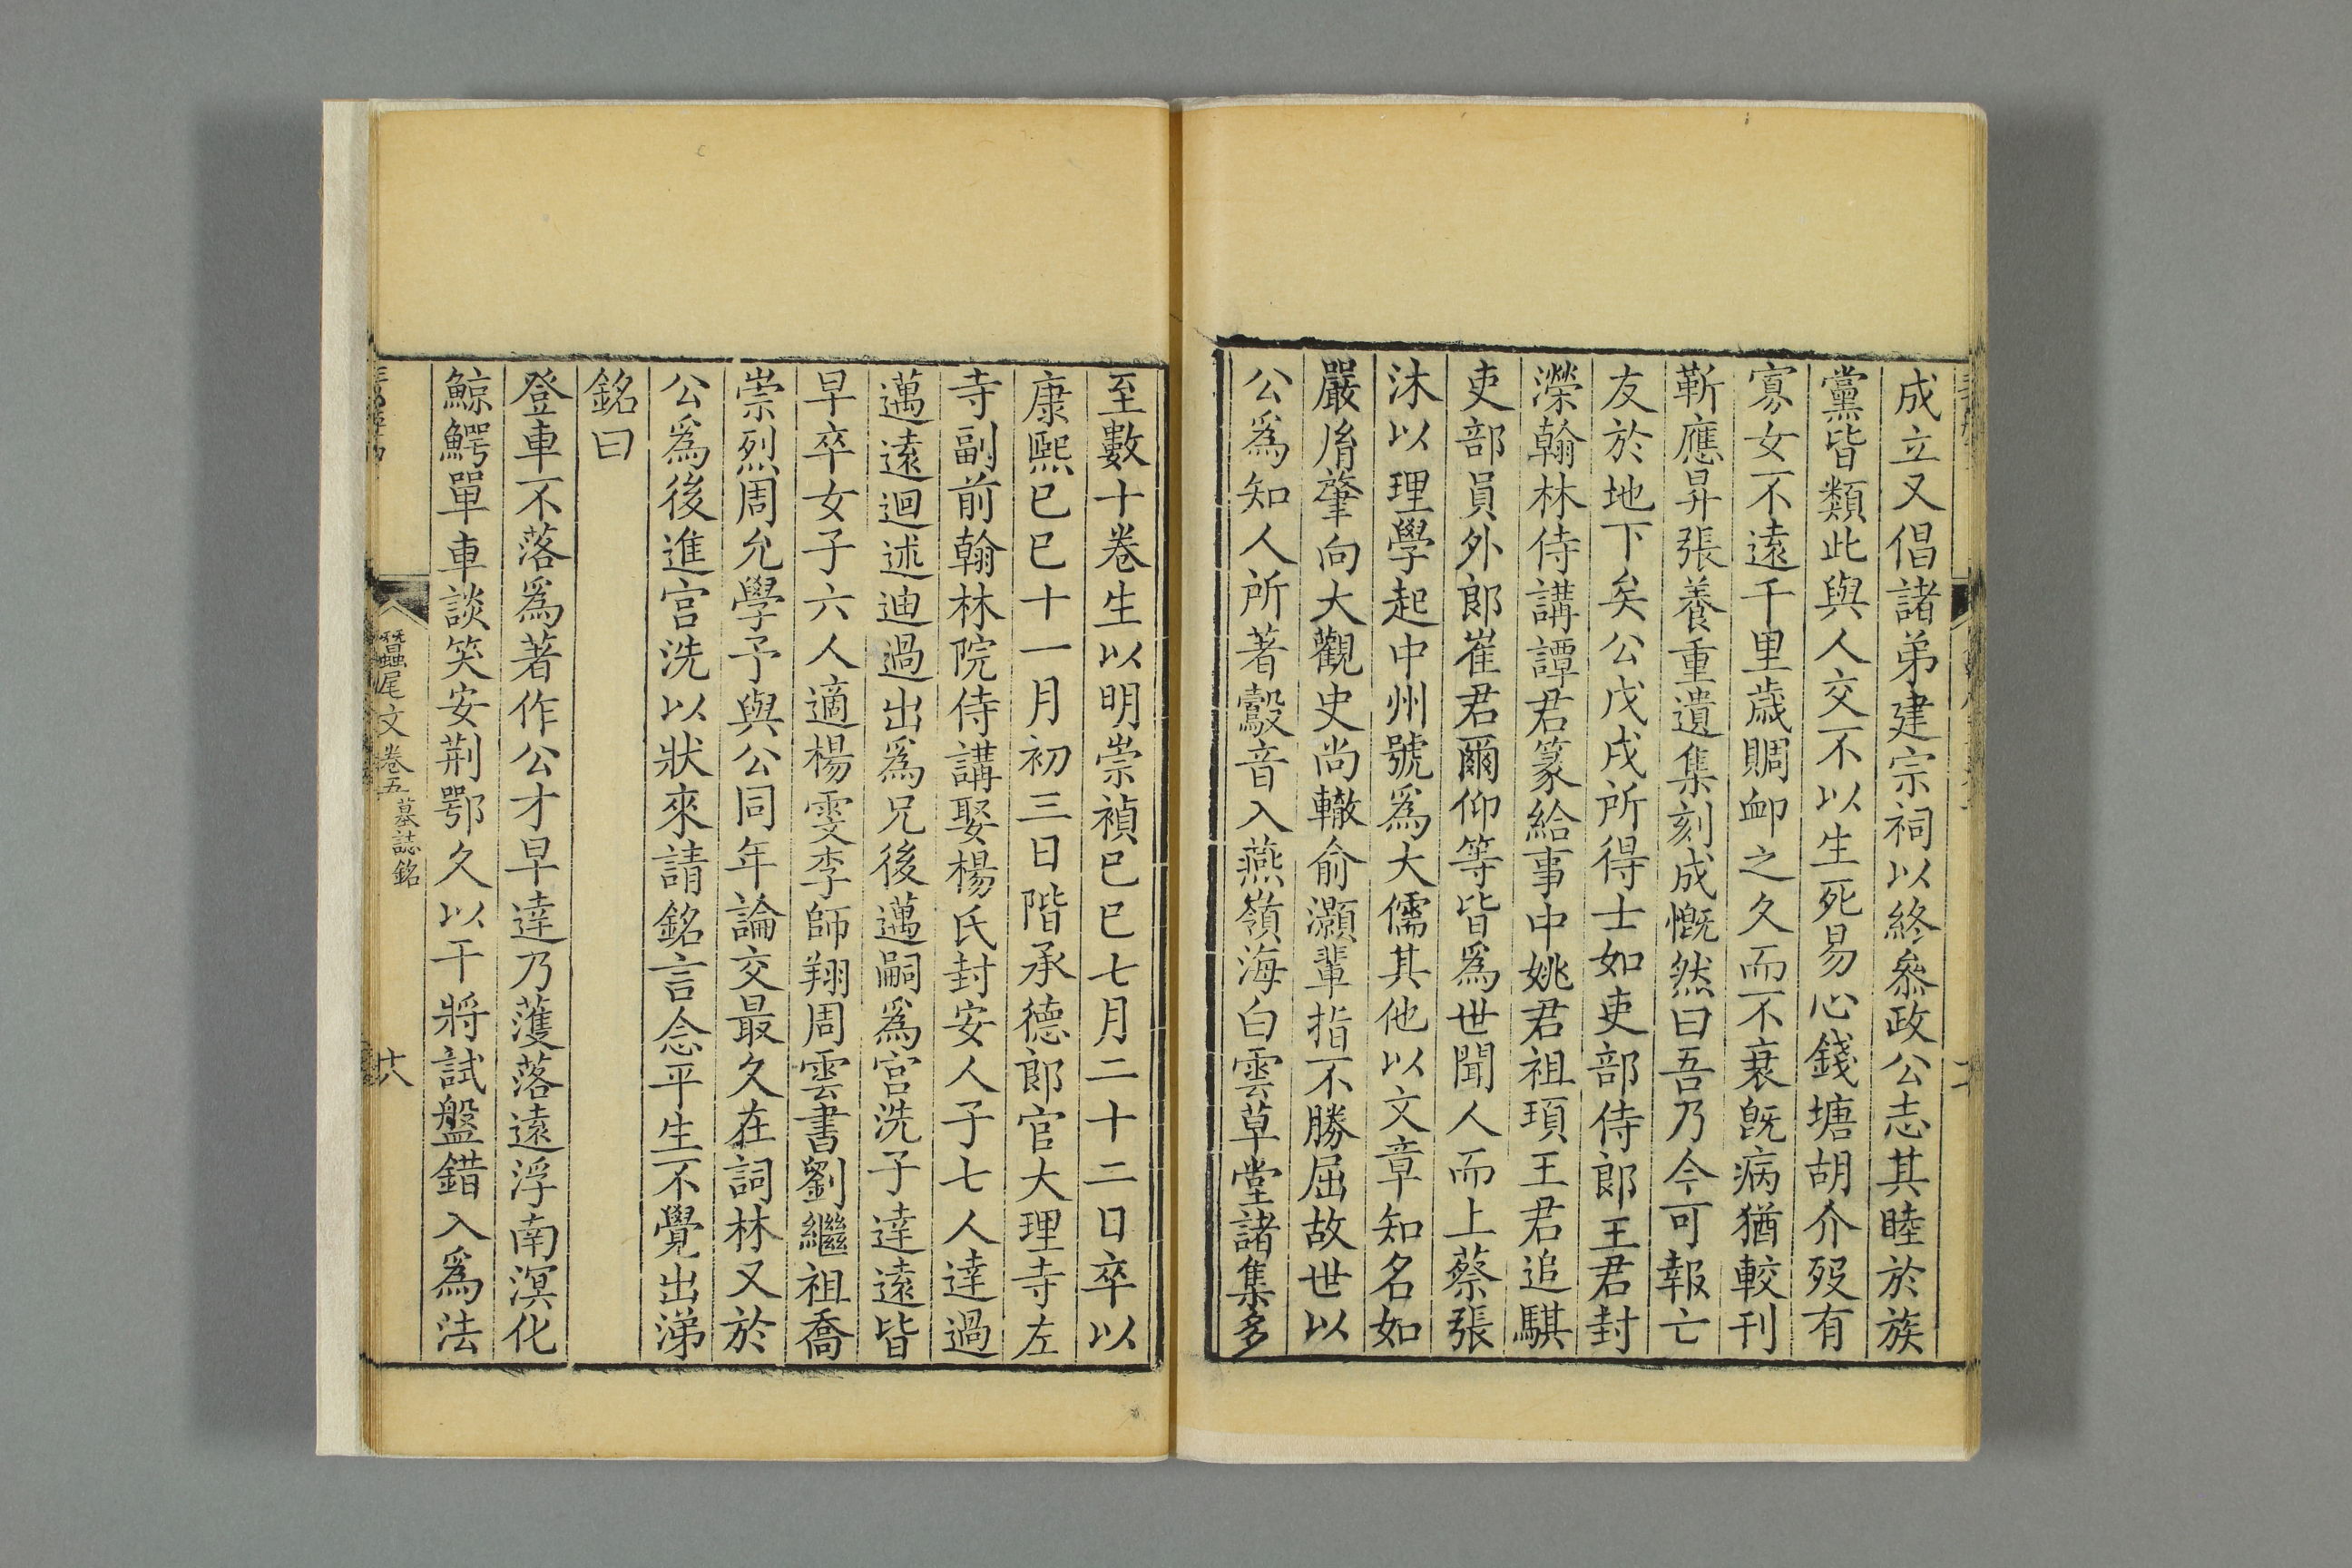 成立又倡諸弟建宗祠以終叅政公志其睦於族
黨皆類此與人交不以生死易心錢塘胡介歿有
寡女不遠千里歲賙衈之久而不衰旣病猶較刊
靳應昇張養重遺集刻成慨然曰吾乃今可報亡
友於地下矣公戊戌所得士如吏部侍郎王君封
濚翰林侍講譚君篆給事中姚君祖頊王君追騏
吏部員外郎崔君爾仰等皆爲世聞人而上蔡張
沐以理學起中州號爲大儒其他以文章知名如
嚴胤肇向大觀史尚轍俞灝輩指不勝屈故世以
公爲知人所著鷇音入燕嶺海白雲草堂諸集多
至數十卷生以明崇禎巳巳七月二十二日卒以
康熙巳巳十一月初三日階承德郎官大理寺左
寺副前翰林院侍講娶楊氏封安人子七人達過
邁遠迴述迪過出爲兄後邁嗣爲宮洗子達遠皆
早卒女子六人適楊雯李師翔周雲書劉繼祖喬
崇烈周允學予與公同年論交最久在詞林又於
公爲後進宮洗以狀來請銘言念平生不覺出涕
銘曰
登車不落爲著作公才早達乃蒦落遠浮南溟化
鯨鰐單車談笑安荆鄂久以干將試盤錯入爲法
蠶尾文卷五 墓誌銘 十八